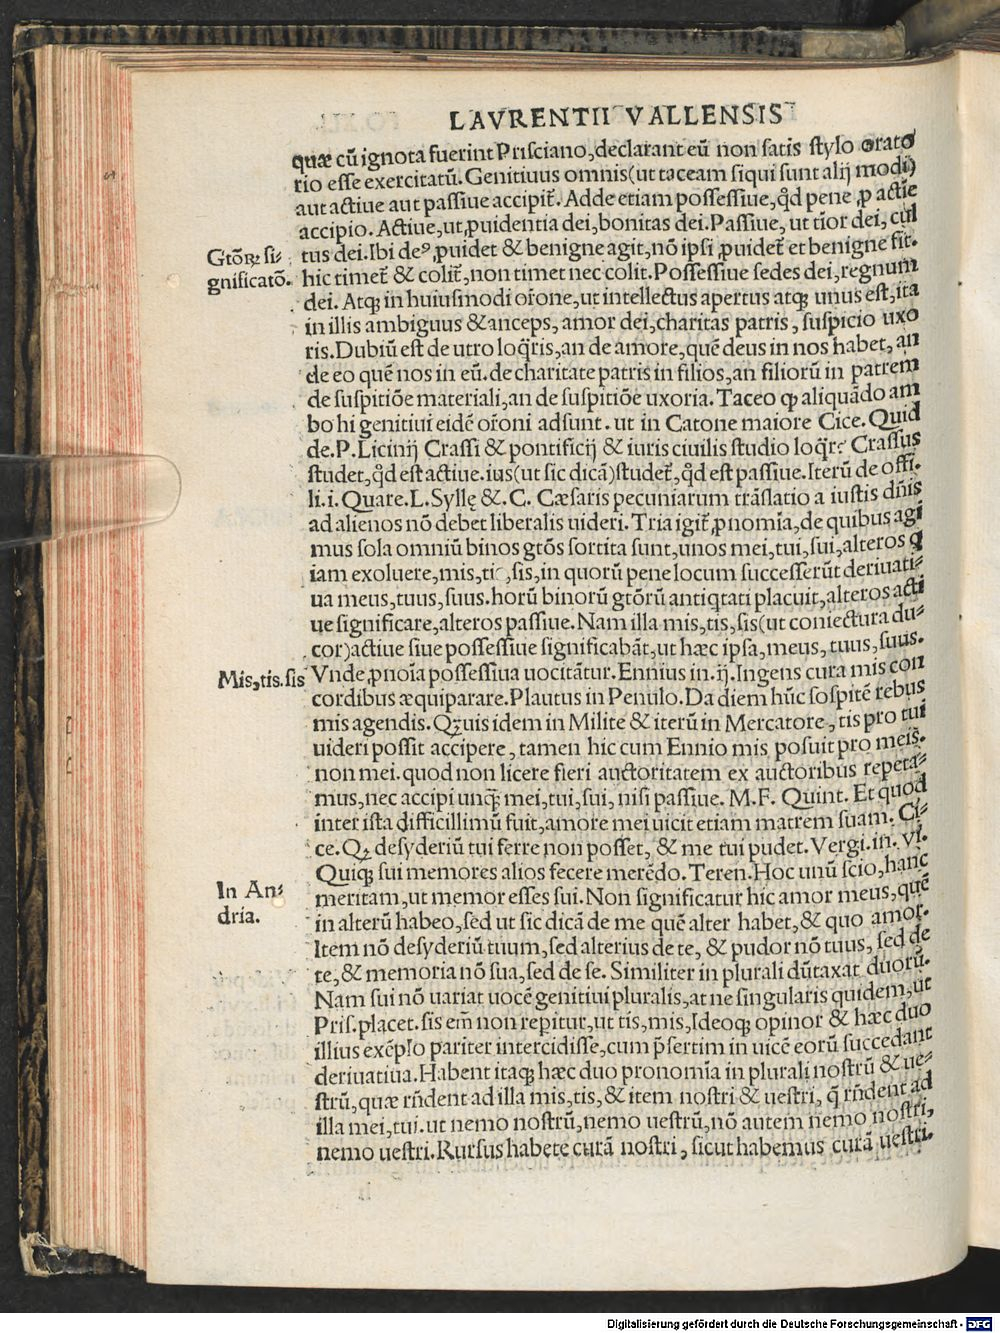 LAVRENTII VALLENSIS
quæ cū ignota fuerint Prisciano, declarant eū non satis stylo orato
rio esse exercitatū. Genitiuus omnis (ut taceam siqui sunt alij modi)
aut actiue aut passiue accipit̃. Adde etiam possessiue, qď pene ꝓ actiue
accipio. Actiue, ut ꝓuidentia dei, bonitas dei. Passiue, ut tĩor dei, cul
Gtōꝝ si⸗
tus dei. Ibi deꝰ ꝓuidet & benigne agit, nō ipsi ꝓuidet̃ et benigne fit.
gnificatō.
hic timet̃ & colit̃, non timet nec colit. Possessiue sedes dei, regnum
dei. Atqꝫ in huiusmodi orōne, ut intellectus apertus atqꝫ unus est, ita
in illis ambiguus & anceps, amor dei, charitas patris, suspicio uxo
ris. Dubiū est de utro loq̃ris, an de amore, quē deus in nos habet, an
de eo quē nos in eū. de charitate patris in filios, an filiorū in patrem
de suspitiōe materiali, an de suspitiōe uxoria. Taceo ꝙ aliquādo am
bo hi genitiui eidē orōni adsunt. ut in Catone maiore Cice. Quid
de. P. Licinij Crassi & pontificij & iuris ciuilis studio loq̃r? Crassus
studet, qď est actiue. ius (ut sic dicā) studet̃, qď est passiue. Iterū de offi.
li. i. Quare. L. Syllę &. C. Cæsaris pecuniarum trāslatio a iustis dñis
ad alienos nō debet liberalis uideri. Tria igit̃ ꝓnomĩa, de quibus agi
mus sola omniū binos gtōs sortita sunt, unos mei, tui, sui, alteros q
iam exoluere, mis, tis, sis, in quorū pene locum successerūt deriuati⸗
ua meus, tuus, suus. horū binorū gtōrū antiqtati placuit, alteros acti
ue significare, alteros passiue. Nam illa mis, tis, sis (ut coniectura du⸗
cor) actiue siue possessiue significabāt, ut hæc ipsa, meus, tuus, suus.
Mis, tis. sis
Vnde ꝓnoĩa possessiua uocitātur. Ennius in. ij. Ingens cura mis con
cordibus æquiparare. Plautus in Penulo. Da diem hūc sospitē rebus
mis agendis. Qꝫuis idem in Milite & iterū in Mercatore, tis pro tui
uideri possit accipere, tamen hic cum Ennio mis posuit pro meis.
non mei. quod non licere fieri auctoritatem ex auctoribus repeta⸗
mus, nec accipi unqꝫ mei, tui, sui, nisi passiue. M. F. Quint. Et quod
inter ista difficillimū fuit, amore mei uicit etiam matrem suam. Ci⸗
ce. Qꝫ desyderiū tui ferre non posset, & me tui pudet. Vergi. in. vi.
Quiqꝫ sui memores alios fecere merēdo. Teren. Hoc unū scio, hanc
In An⸗
meritam, ut memor esses sui. Non significatur hic amor meus, quē
dria.
in alterū habeo, sed ut sic dicā de me quē alter habet, & quo amor.
Item nō desyderiū tuum, sed alterius de te, & pudor nō tuus, sed de
te, & memoria nō sua, sed de se. Similiter in plurali dūtaxat duorū.
Nam sui nō uariat uocē genitiui pluralis, at ne singularis quidem, ut
Pris. placet. sis em̃ non reꝑitur, ut tis, mis, Ideoqꝫ opinor & hæc duo
illius exēplo pariter intercidisse, cum p̃sertim in uicē eorū succedant
deriuatiua. Habent itaqꝫ hæc duo pronomĩa in plurali nostrū & ue⸗
strū, quæ rñdent ad illa mis, tis, & item nostri & uestri, q̃ rñdent ad
illa mei, tui. ut nemo nostrū, nemo uestrū, nō autem nemo nostri,
nemo uestri. Rursus habete curā nostri, sicut habemus curā uestri.
Digitalisierung gefördert durch die Deutsche Forschungsgemeinschaft - DFG